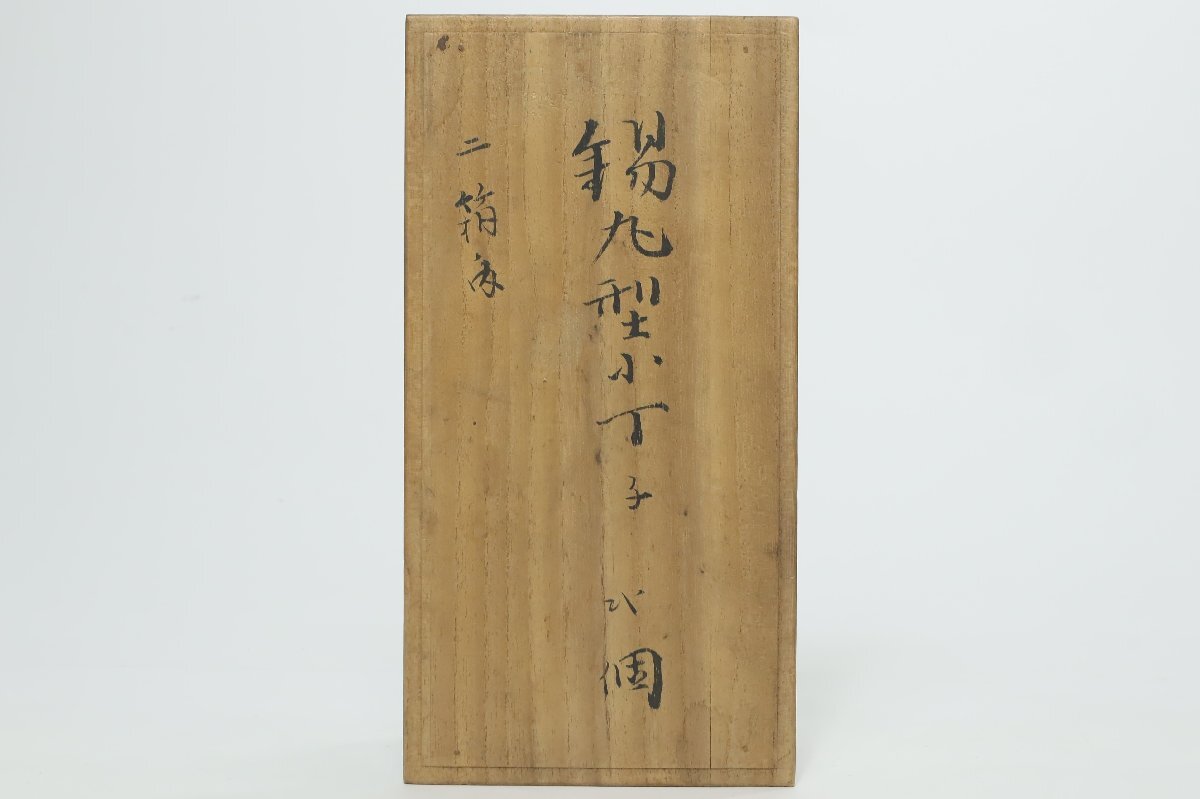 錫丸型小丁子 弐個
二箱内